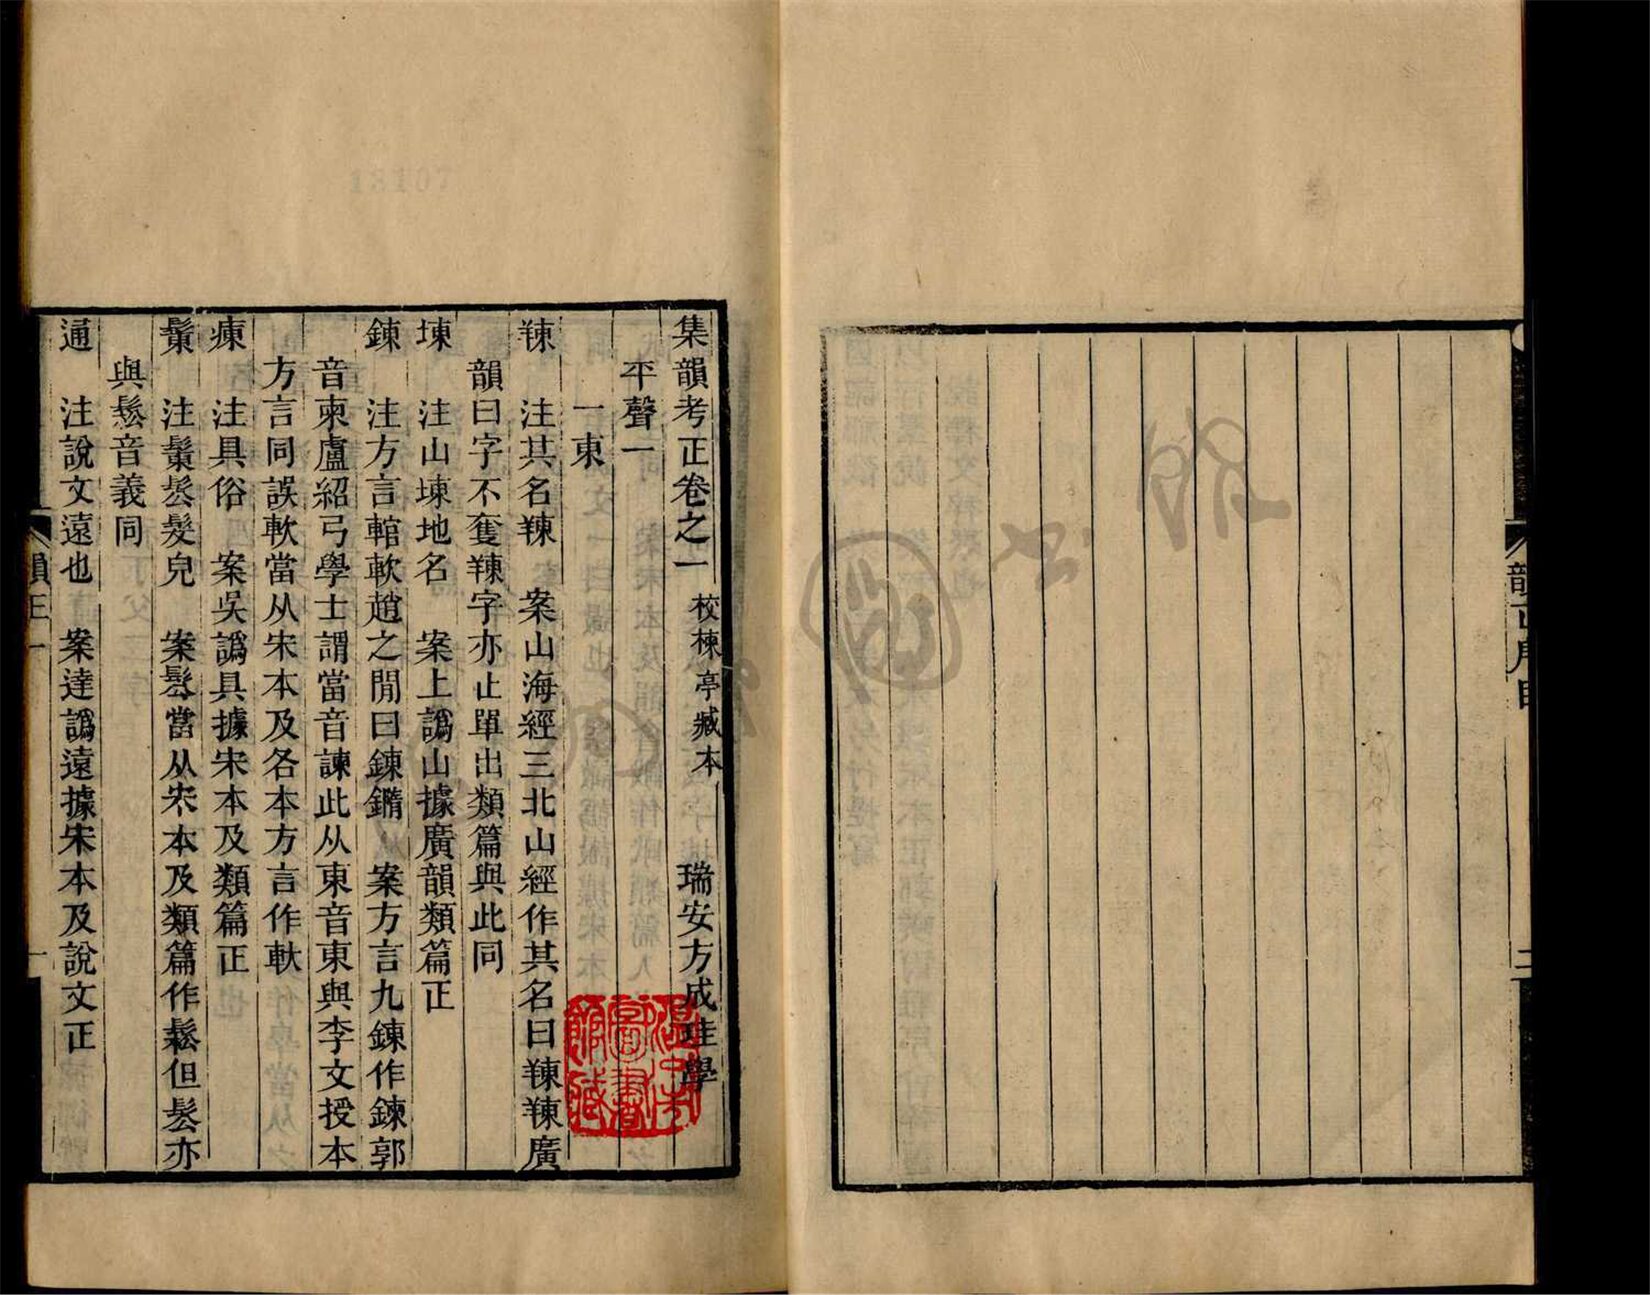 集韻考正卷之一　校棟亭臧本　瑞安方成珪學
平聲一
一東
䍶　注其名䍶　案山海經三北山經作其名曰䍶䍶廣
韻曰字不奪䍶字亦止單出類篇與此同
埬　注山埬地名　案上譌山據廣韻類篇正
錬　注方言輨軟趙之閒曰錬鐫　案方言九錬作鍊郭
音柬盧紹弓學士謂當音諫此从東音東與李文授本
方言同誤軟當从宋本及各本方言作軑
㾄　注具俗　案吳譌具據宋本及類篇正
鬃　注鬃髟髮皃　案髟當从宋本及類篇作鬆但髟亦
與鬆音義同
通　注說文遠也　案達譌遠據宋本及說文正
韻正一
一
韻正序目
二
溫州市圖書館藏
18107